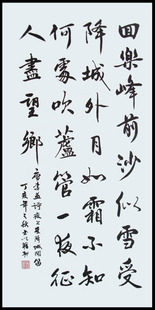 回樂峰前沙似雪受
降城外月如霜不知
何處吹蘆管一夜征
人盡望鄉
唐李益詩夜上受降城聞笛